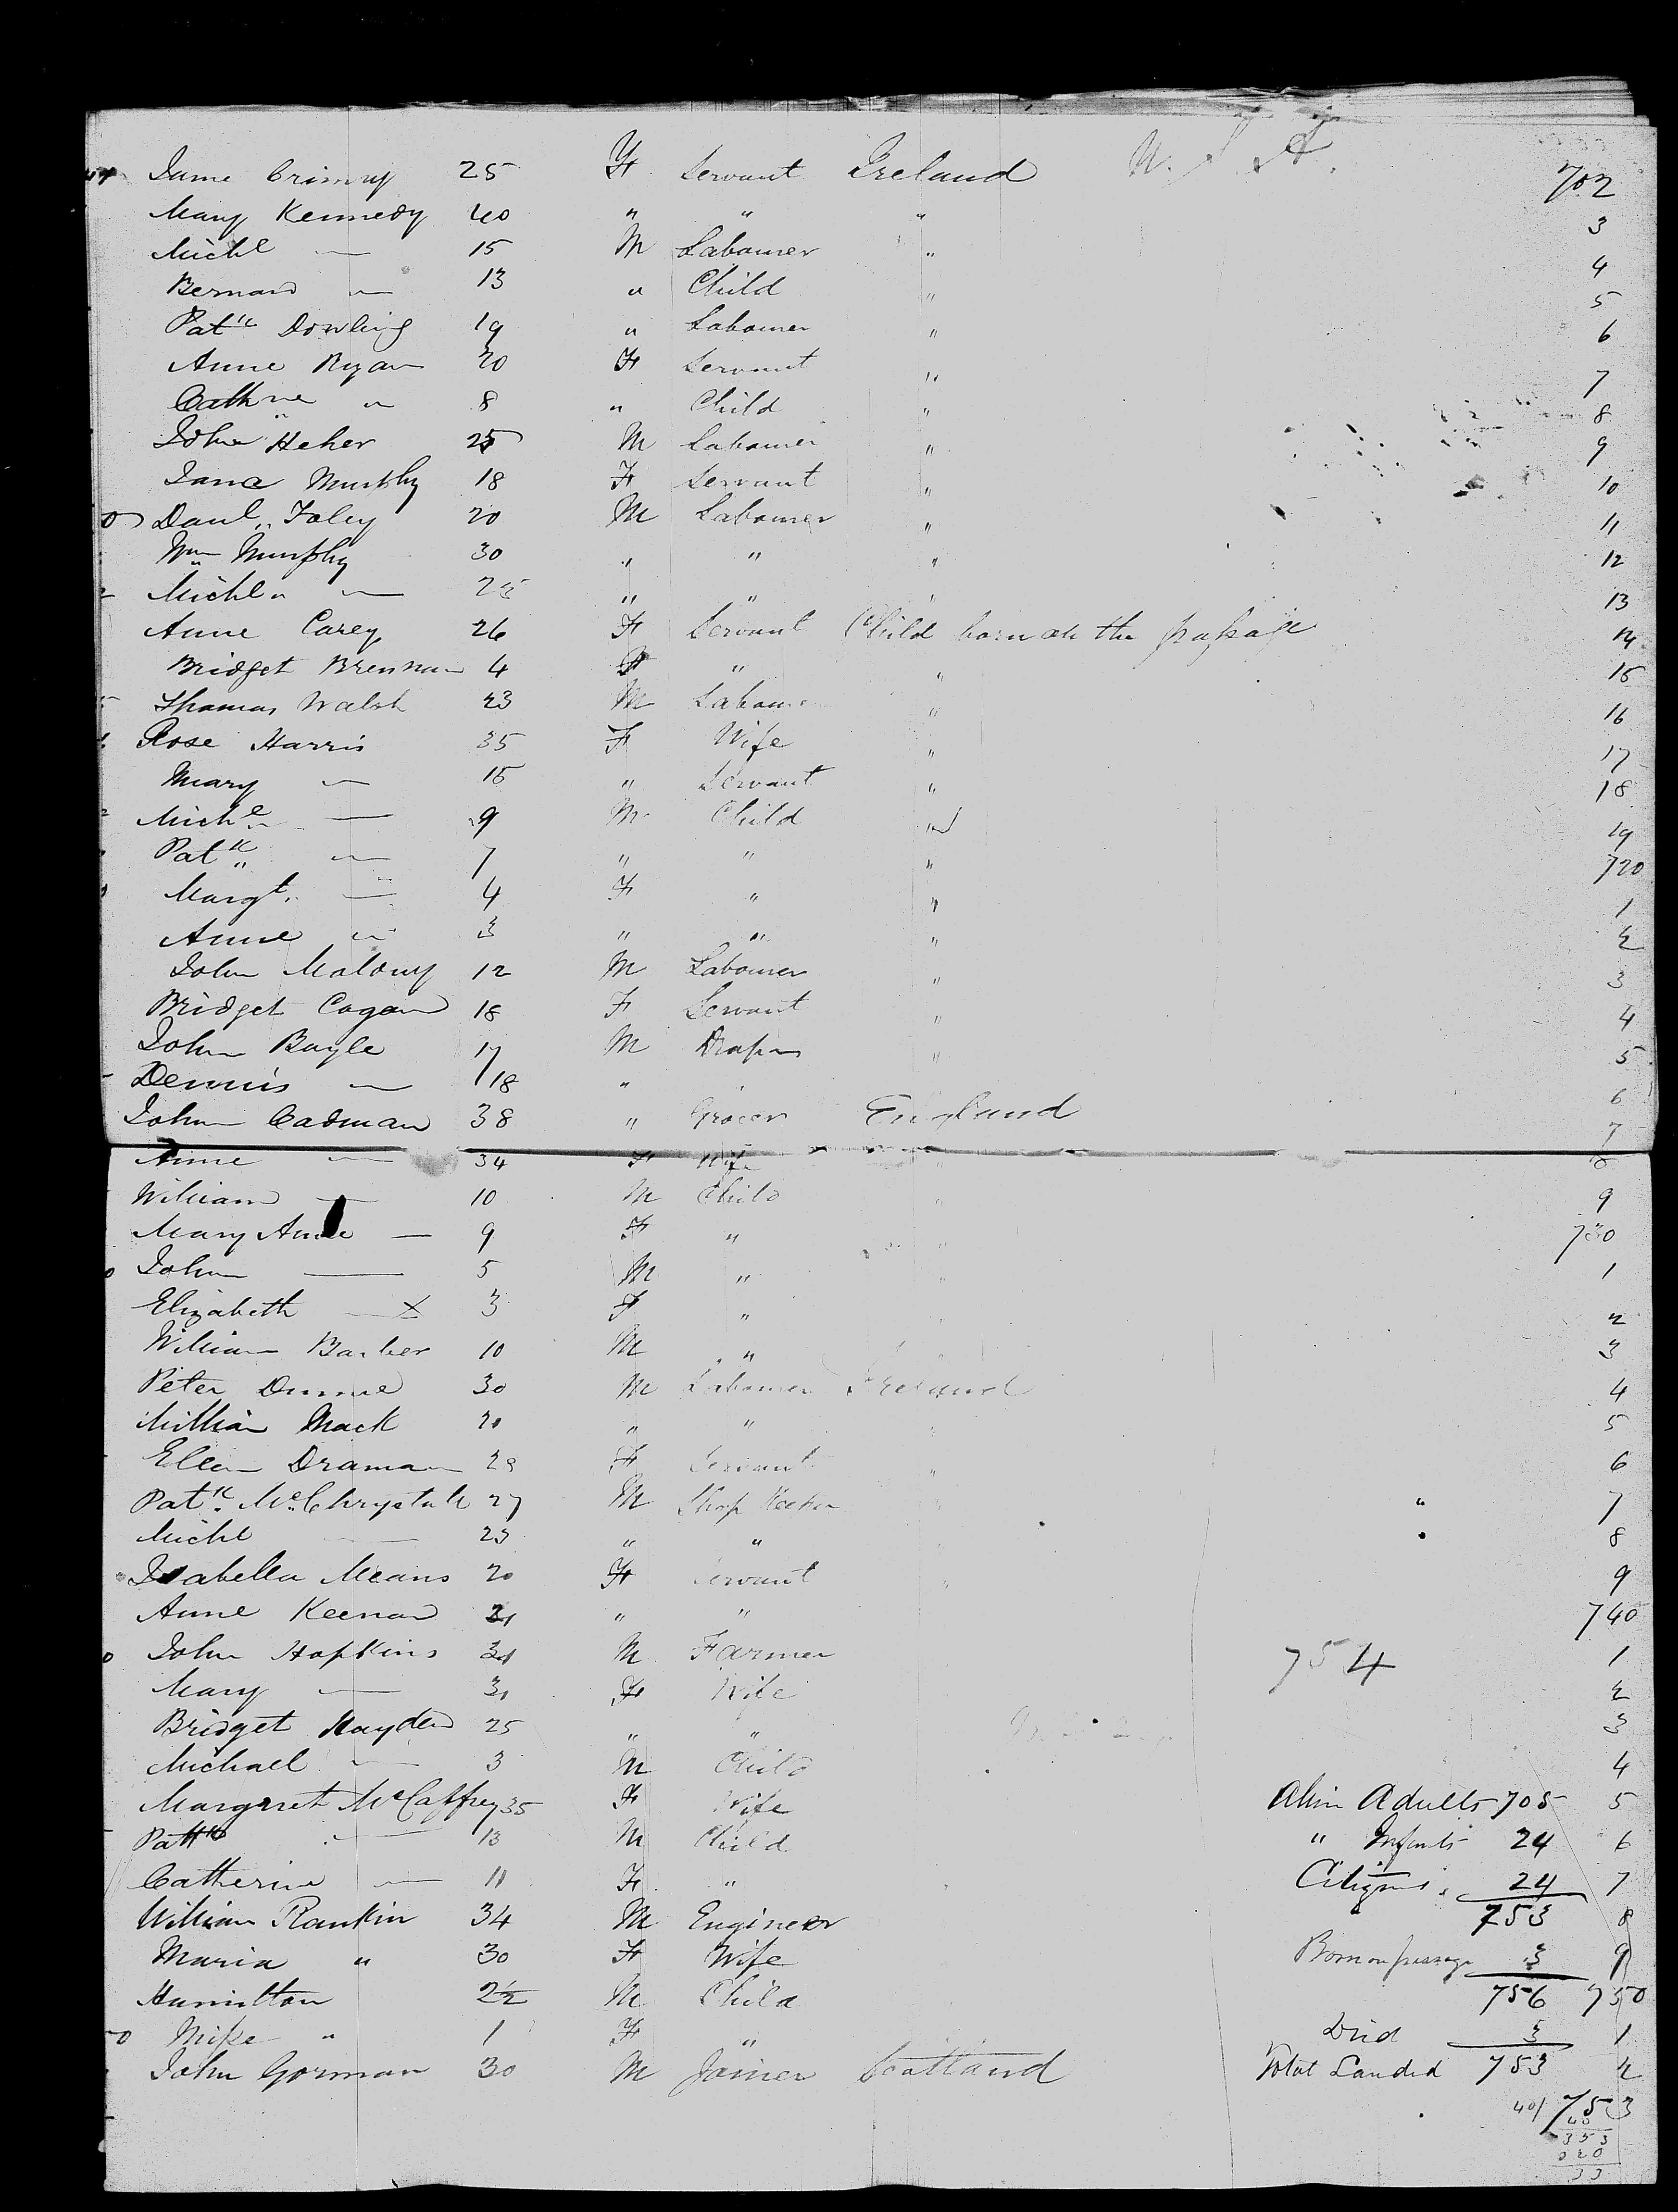 Jane Crimmy 25 F Servant Ireland U. S. A. 702
Mary Kennedy 40 " " " 3
Michl — 15 M Labourer " 4
Bernard — 13 " Child " 5
Patk Dowling 19 " Labourer " 6
Anne Ryan 20 F Servant " 7
Cathne " 8 " Child " 8
John Heher 25 M Labourer " 9
Jane Murphy 18 F Servant " 10
Danl Foley 20 M Labourer " 11
Wm Murphy 30 " " " 12
Michl — 25 " " " 13
Anne Carey 26 F Servant Child born on the passage 14
Bridget Brennan 4 F " " 15
Thomas Walsh 23 M Labourer " 16
Rose Harris 35 F Wife " 17
Mary — 15 " Servant " 18
Michl — 9 M Child " 19
Patk — 7 " " " 720
Margt — 4 F " " 1
Anne — 3 " " " 2
John Malony 12 M Labourer " 3
Bridget Cogan 18 F Servant " 4
John Bayle 17 M Draper " 5
Dennis — 18 " 6
John Cadman 38 " Grocer England 7
Anne — 34 F Wife " 8
William — 10 M Child " 9
Mary Anne — 9 F " 730
John — 5 M " 1
Elizabeth — x 3 F " 2
William Barber 10 M " 3
Peter Dunne 30 M Labourer Ireland 4
William Mack 20 " " 5
Ellen Draman 28 F Servant " 6
Patk McChrystall 27 M Shop Keeper " 7
Michl — 23 " " 8
Isabella Means 20 F Servant " 9
Anne Keenan 21 " " 740
John Hopkins 31 M Farmer 754 1
Mary — 31 F Wife 2
Bridget Hayden 25 " " 3
Michael — 3 M Child 4
Margaret McCaffrey 35 F Wife Alien Adults 705 5
Patk — 13 M Child " Infants 24 6
Catherine — 11 F " Citizens 24 7
William Rankin 34 M Engineer 753 8
Maria " 30 F Wife Born on passage 3 9
Hamilton 2½ M Child 756 750
" 1 F " Died 3 1
John Gorman 30 M Joiner Scotland Total Landed 753 2
40/ 753
40
353
320
33